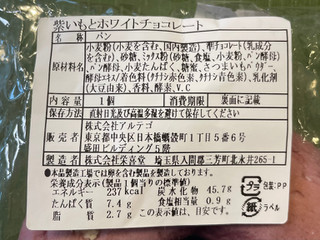 紫いもとホワイトチョコレート
名称 パン
原材料名 小麦粉(小麦を含む、国内製造)、準チョコレート(乳成分
を含む)、砂糖、ミックス粉(砂糖、食塩、小麦粉、ぶどう糖)、
パン酵母、小麦たんぱく、糖蜜、さつまいもパウダー、
酵母エキス/着色料(クチナシ赤色素、クチナシ青色素)、乳化剤
(大豆由来)、香料、酵素、V.C
内容量 1個 消費期限 裏面に記載
保存方法 直射日光及び高温多湿を避けて保存してください
販売者 株式会社アルテゴ
東京都中央区日本橋蛎殻町1丁目5番6号
盛田ビルディング5階
製造者 株式会社栄喜堂 埼玉県入間郡三芳町北永井265-1
●本品製造工場では卵を含む製品を製造しております。
栄養成分表示(製品1個当りの標準値)
エネルギー 237kcal 炭水化物 45.7g
たんぱく質 7.4g 食塩相当量 0.9g
脂質 2.7g この表示値は、目安です。
プラ 包装:PP
紙 ラベル